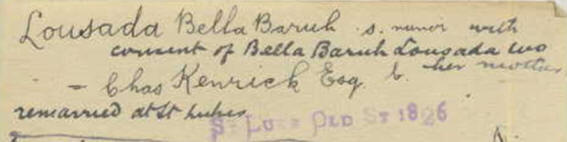 Lousada Bella Baruh s. minor with
consent of Bella Baruh Lousada wo
her mother
– Chas Kenrick Esq. b.
remarried at St Lukes
St Luke Old St 1826